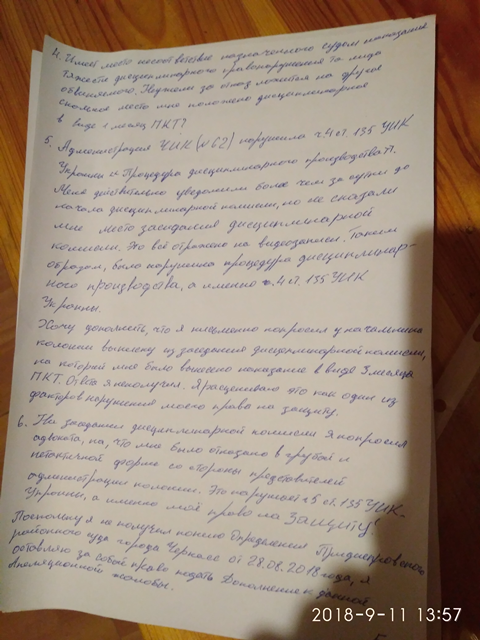 4. Имеет место несоответствие назначенного судом наказания
тяжести дисциплинарного правонарушения та лица
обвиняемого. Неужели за отказ ложится на другое
спальное место мне положено дисциплинарное
в виде 1 месяц ПКТ?
5. Администрация ЧИК (№62) нарушила ч.4 ст. 135 УИК
Украины и Процедура дисциплинарного производства.
Меня действительно уведомили более чем за сутки до
начала дисциплинарной комисии, но не сказали
мне место заседания дисциплинарной
комисии. Это всё отражено на видеозаписи. Таким
образом, была нарушена процедура дисциплинар-
ного производства, а именно ч.4 ст. 135 УИК
Украины.
Хочу дополнить, что я письменно попросил у начальника
колонии выписку из заседания дисциплинарной комисии,
на которой мне было вынесено наказание в виде 3 месяца
ПКТ. Ответа я не получил. Я расцениваю это как один из
факторов нарушения моего права на защиту.
6. На заседании дисциплинарной комисии я попросил
адвоката, на, что мне было отказано в грубой и
нетактичной форме со стороны представителей
администрации колонии. Это нарушает ч.5 ст. 135 УИК
Украины, а именно моё право на Защиту!
Поскольку я не получил копию Определения Приднепровского
районного суда города Черкассы от 28.08.2018 года, я
оставляю за собой право подать Дополнение к данной
Апеляционной жалобы.
2018-9-11 13:57